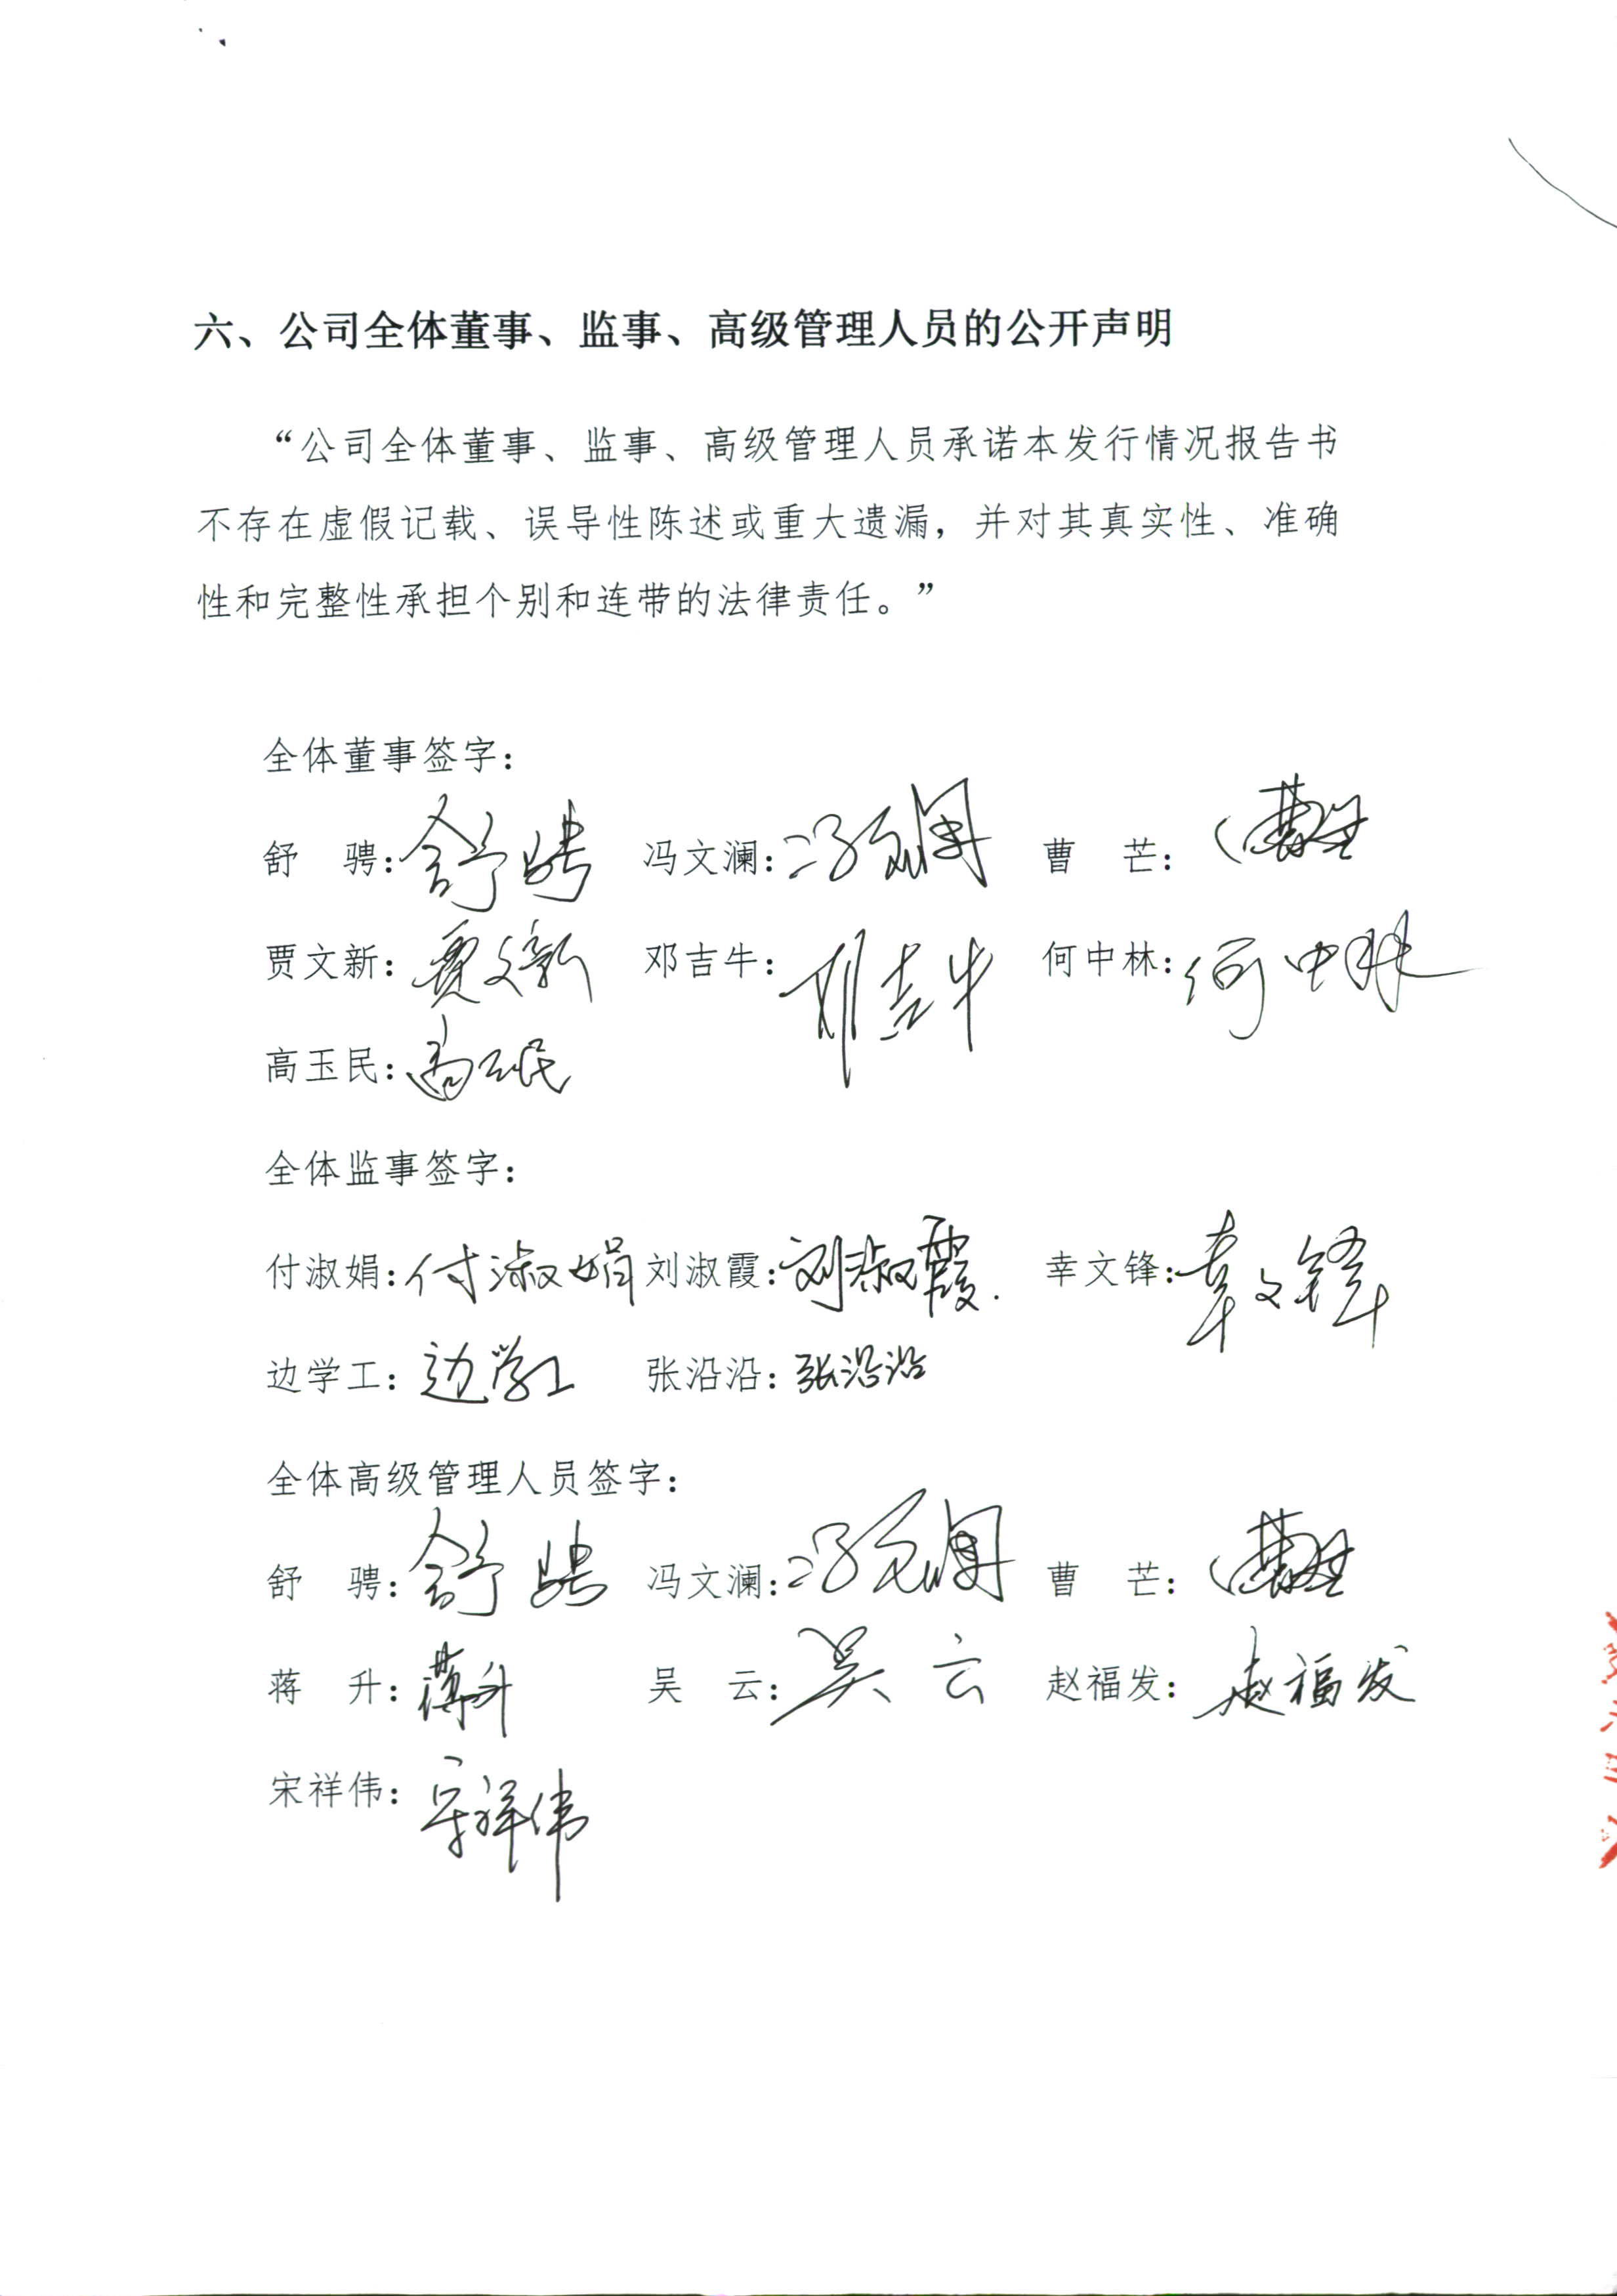 六、公司全体董事、监事、高级管理人员的公开声明
“公司全体董事、监事、高级管理人员承诺本发行情况报告书
不存在虚假记载、误导性陈述或重大遗漏，并对其真实性、准确
性和完整性承担个别和连带的法律责任。”
全体董事签字：
舒 骋：舒骋 冯文澜：冯文澜 曹 芒：曹芒
贾文新：贾文新 邓吉牛：邓吉牛 何中林：何中林
高玉民：高玉民
全体监事签字：
付淑娟：付淑娟 刘淑霞：刘淑霞. 幸文锋：幸文锋
边学工：边学工 张沿沿：张沿沿
全体高级管理人员签字：
舒 骋：舒骋 冯文澜：冯文澜 曹 芒：曹芒
蒋 升：蒋升 吴 云：吴云 赵福发：赵福发
宋祥伟：宋祥伟